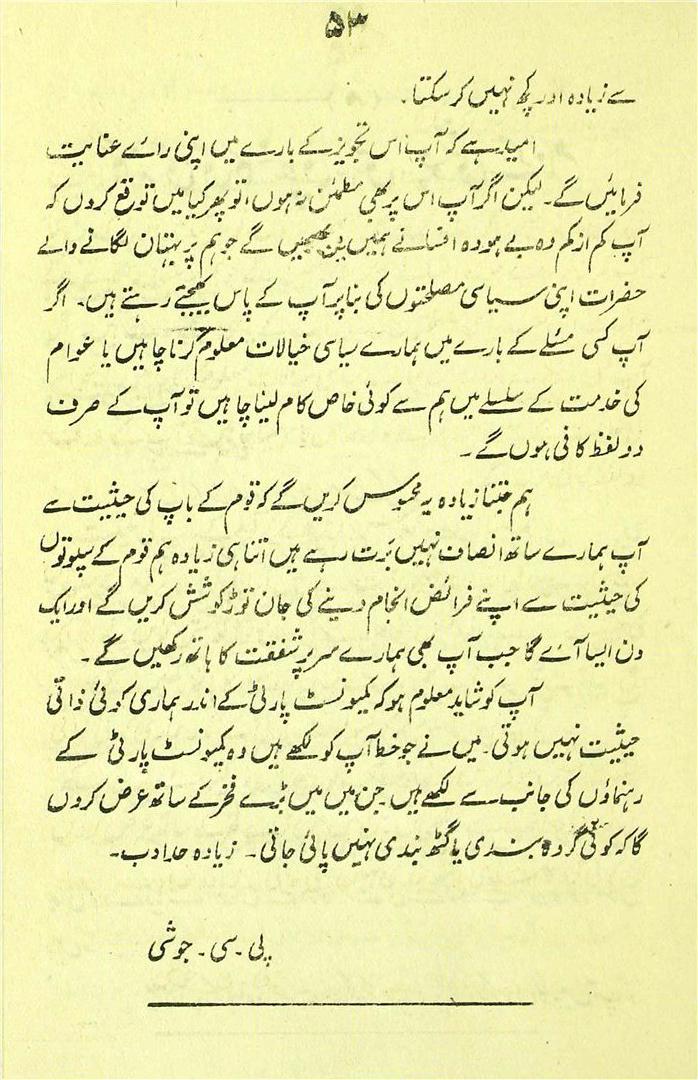 ۵۳
سے زیادہ اور کچھ نہیں کر سکتا۔
امید ہے کہ آپ اس تجویز کے بارے میں اپنی رائے عنایت
فرمائیں گے۔ لیکن اگر آپ اس پر بھی مطمئن نہ ہوں، تو پھر کیا میں توقع کروں کہ
آپ کم از کم وہ بے ہودہ افسانے ہمیں نہیں بھیجیں گے جو ہم پر بہتان لگانے والے
حضرات اپنی سیاسی مصلحتوں کی بنا پر آپ کے پاس بھیجتے رہتے ہیں۔ اگر
آپ کسی مسئلے کے بارے میں ہمارے سیاسی خیالات معلوم کرنا چاہیں یا عوام
کی خدمت کے سلسلے میں ہم سے کوئی خاص کام لینا چاہیں تو آپ کے صرف
دو لفظ کافی ہوں گے۔
ہم جتنا زیادہ یہ محسوس کریں گے کہ قوم کے باپ کی حیثیت سے
آپ ہمارے ساتھ انصاف نہیں برت رہے ہیں اتنا ہی زیادہ ہم قوم کے سپوتوں
کی حیثیت سے اپنے فرائض انجام دینے کی جان توڑ کوشش کریں گے اور ایک
دن ایسا آئے گا جب آپ بھی ہمارے سر پر شفقت کا ہاتھ رکھیں گے۔
آپ کو شاید معلوم ہو کہ کمیونسٹ پارٹی کے اندر ہماری کوئی ذاتی
حیثیت نہیں ہوتی۔ میں نے جو خط آپ کو لکھے ہیں وہ کمیونسٹ پارٹی کے
رہنماؤں کی جانب سے لکھے ہیں جن میں میں بڑے فخر کے ساتھ عرض کروں
گا کہ کوئی گروہ بندی یا گٹھ بندی نہیں پائی جاتی۔ زیادہ حد ادب۔
پی۔سی۔جوشی